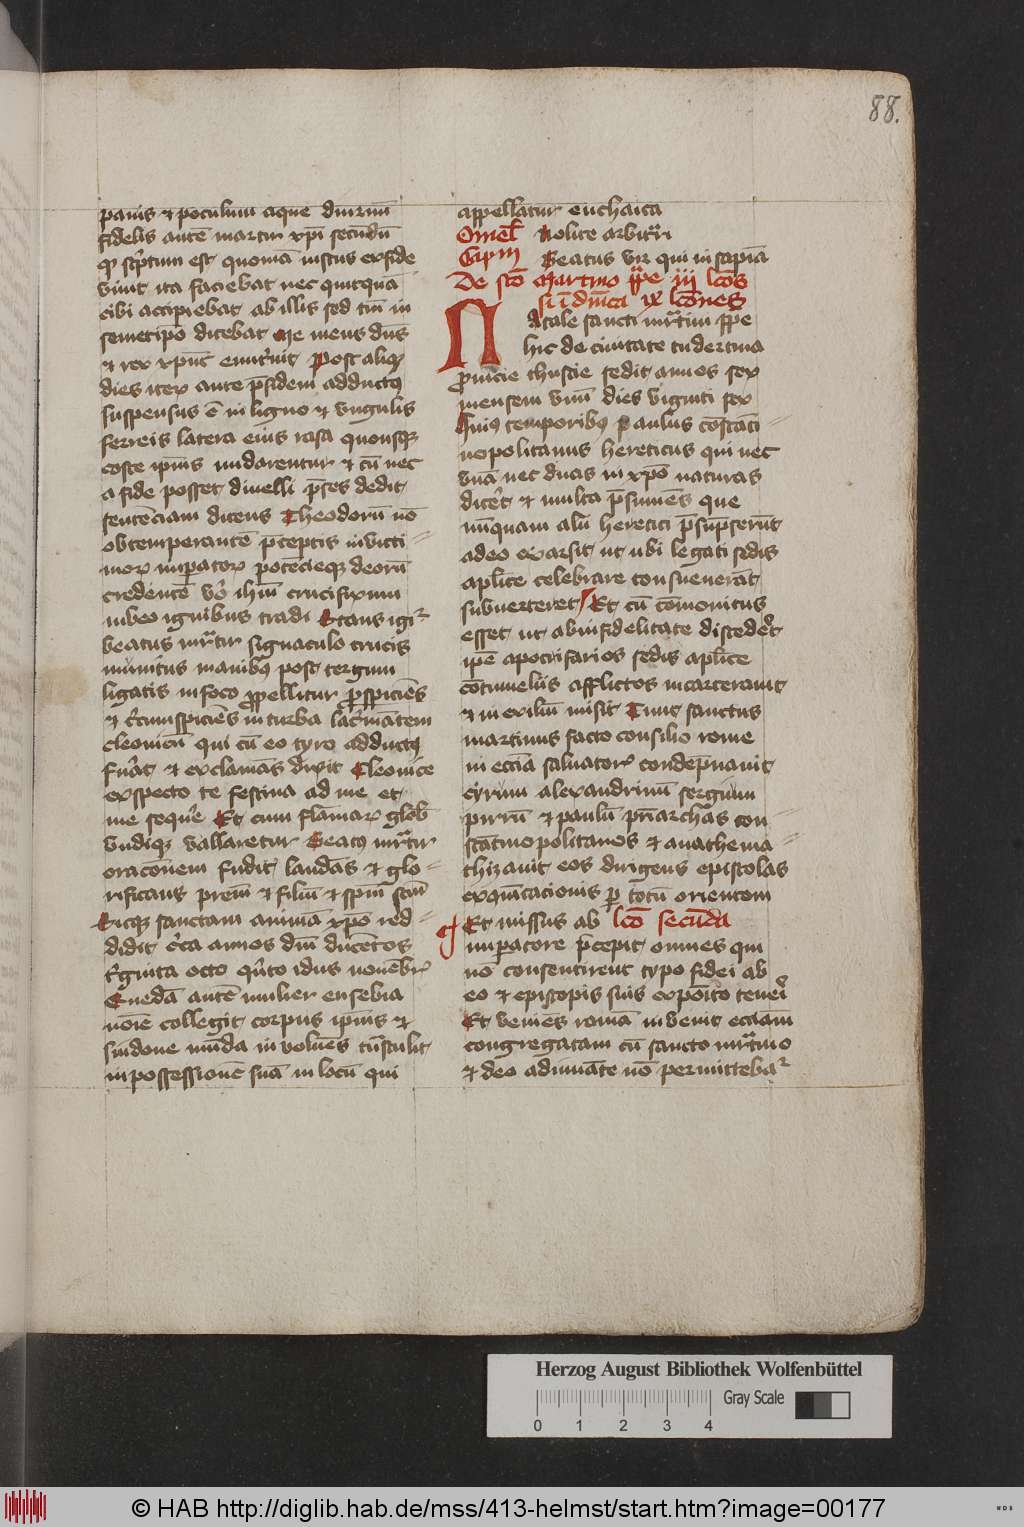 88.
panis et poculum aque diurnū
fidelis autē martir xpī secūdū
qd sc̄ptum est quoniā iustus ex fide
vivit ita faciebat nec quicquā
cibi accipiebat ab illis sed tm̄ in
semetipo dicebat Me meus dn̄s
et rex xpūs enutrit Post aliqͦ
dies iteꝝ ante p̄sidem adductꝰ
suspensus ē in ligno et vngulis
ferreis latera eius rasa quousqꝫ
coste ipīus nudarentur et cū nec
a fide posset divelli p̄ses dedit
sentēciam dicens Theodorū nō
obtemperantē p̄ceptis invicti
moꝝ imp̄atoꝝ potēcieqꝫ deorū
credentē vo ihm̄ crucifixum
iubeo ignibus tradi Stans igiͬ
beatus mr̄tir signaculo crucis
munitus manibꝰ post tergum
ligatis in foco ꝓpellitur p̄spiciēs
et circumspiciēs in turba lac̄mātem
cleonicū qui cū eo tyro adductꝰ
fuāt et exclamās dixit Cleonice
exspecto te festina ad me et
me sequere Et cum flāmaꝝ glob
vndiqꝫ vallaretur Beatꝰ mr̄tir
oracōnem fudit laudās et glo
rificans prem̄ et filiū et spm̄ scm̄
Sicqꝫ sanctam animā xpō red
didit circa annos dn̄i ducētos
t̄ginta octo qͥnto idus nouēbr̄
Quedā autē mulier eusebia
noīe collegit corpus ipīus et
sindone mūda involuēs tūsculit
in possessionē suā in locū qui
appellatur euchaica
Omel̄ Nolite arbitrari
Cap m Beatus vir qui in sapiā
De sco Martino ꝑpe iij lcōs
si ī dnīca ix lcōnes
Natale sancti mr̄tini ꝑpe
hic de ciuitate tudertina
ꝓuincie thuscie sedit annos sex
mensem vnū dies viginti sex
Huiꝰ temporibꝰ Paulus cōstāti
nopolitanus hereticus qui nec
vnā nec duas in xpō naturas
dicēt et multa p̄sumēs que
nūquam alii heretici p̄sūpserūt
adeo exarsit ut ubi legati sedis
aplīce celebrare consueuerāt
subuerteret Et cū cōmonitus
esset ut ab infidelitate discederet
ipē apocrifarios sedis aplīce
cōtumeliis afflictos incarcerauit
et in exiliū misit Tunc sanctus
martinus facto consilio rome
in ecciā saluatoꝝ condēpnauit
cyrum alexandrinū sergium
pirrū et paulū pr̄iarchas con
stātinopolitanos et anathema
thizauit eos dirigens epistolas
exquīcacionis ꝑ totū orientem
Et missus ab lcō secūda
imp̄atore p̄cepit omnes qui
nō consentirent typo fidei ab
eo et episcopis suis expōito teneri
Et veniēs romā invenit ecciam
congregatam cū sancto mr̄tino
et deo adiuuāte nō permittebaͬ
Herzog August Bibliothek Wolfenbüttel
0 1 2 3 4 Gray Scale
© HAB http://diglib.hab.de/mss/413-helmst/start.htm?image=00177